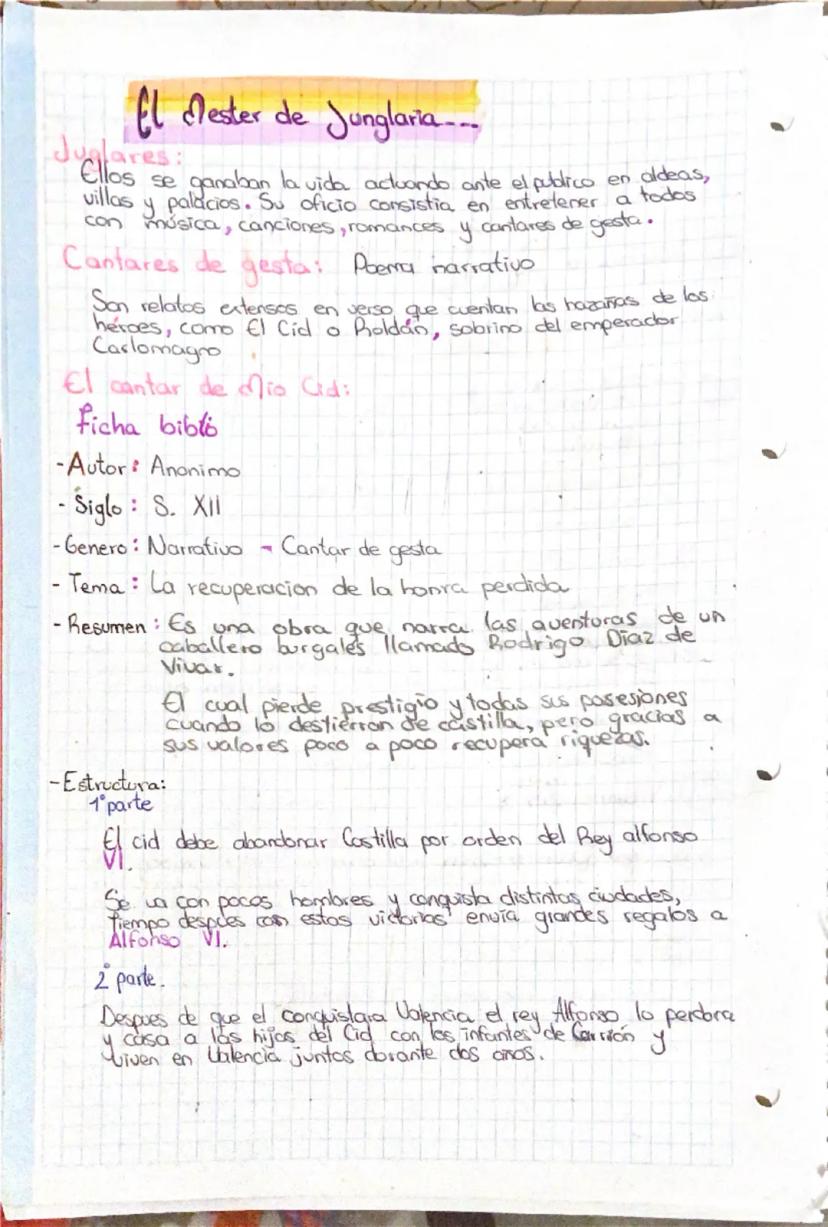 El Mester de Junglaria---
Juglares:
Ellos se ganaban la vida actuando ante el publico en aldeas,
villas y palacios. Su oficio consistia en entretener a todos
con música, canciones, romances y cantares de gesta.
Cantares de gesta: Poema narrativo
Son relatos extensos en verso que cuentan las hazañas de los
héroes, como El Cid o Roldán, sobrino del emperador
Carlomagno
El cantar de Mio Cid:
ficha biblio
-Autor: Anonimo
- Siglo: S. XII
-Genero: Narrativo - Cantar de gesta
- Tema: La recuperacion de la honra perdida
- Resumen: Es una obra que narra las aventuras de un
caballero burgalés llamado Rodrigo Diaz de
Vivar.
El cual pierde prestigio y todas sus posesiones
cuando lo destierran de castilla, pero gracias a
sus valores poco a poco recupera riquezas.
-Estructura:
1º parte
El cid debe abandonar Castilla por orden del Rey alfonso
VI.
Se va con pocos hombres y conquista distintas ciudades,
tiempo despues con estas victorias envia grandes regalos a
Alfonso VI.
2º parte.
Despues de que el conquistara Valencia el rey Alfonso lo perdona
y casa a las hijas del Cid con los infantes de Carrión y
viven en Valencia juntos durante dos años.